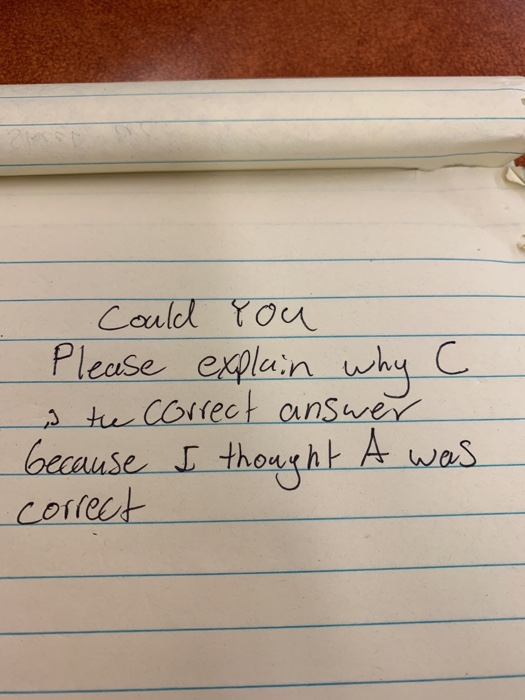 Could You
Please explain why C
is the correct answer
because I thought A was
correct